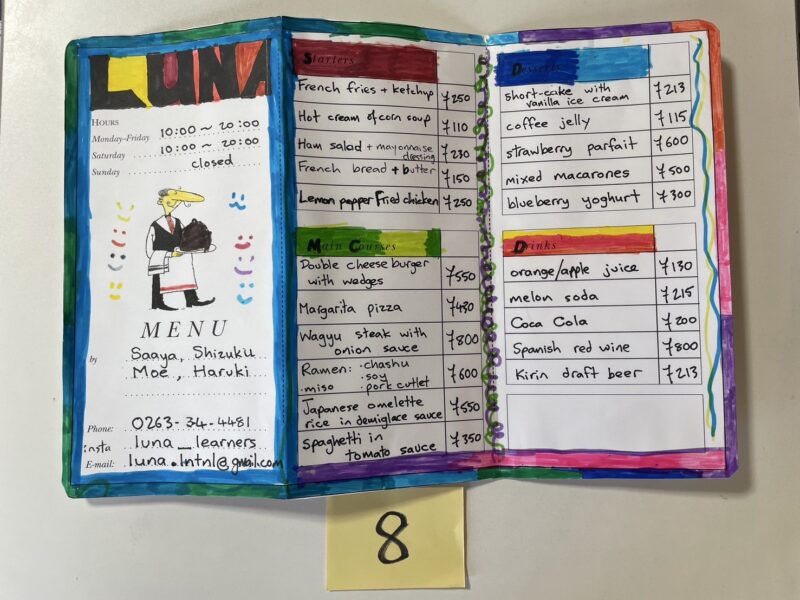 LUNA
HOURS
Monday-Friday 10:00 ~ 20:00
Saturday 10:00 ~ 20:00
Sunday closed
MENU
by Saaya, Shizuku
Moe, Haruki
Phone: 0263-34-4481
insta luna_learners
E-mail: luna.Intnl@gmail.com
Starters
French fries + ketchup ¥250
Hot cream of corn soup ¥110
Ham salad + mayonnaise
dressing ¥230
French bread + butter ¥150
Lemon pepper Fried chicken ¥250
Main Courses
Double cheese burger
with wedges ¥550
Margarita pizza ¥480
Wagyu steak with
onion sauce ¥800
Ramen: ·chashu
·soy
·miso ·pork cutlet ¥600
Japanese omelette
rice in demiglace sauce ¥550
spaghetti in
tomato sauce ¥350
Desserts
short-cake with
vanilla ice cream ¥213
coffee jelly ¥115
strawberry parfait ¥600
mixed macarones ¥500
blueberry yoghurt ¥300
Drinks
orange/apple juice ¥130
melon soda ¥215
Coca Cola ¥200
Spanish red wine ¥800
Kirin draft beer ¥213
8